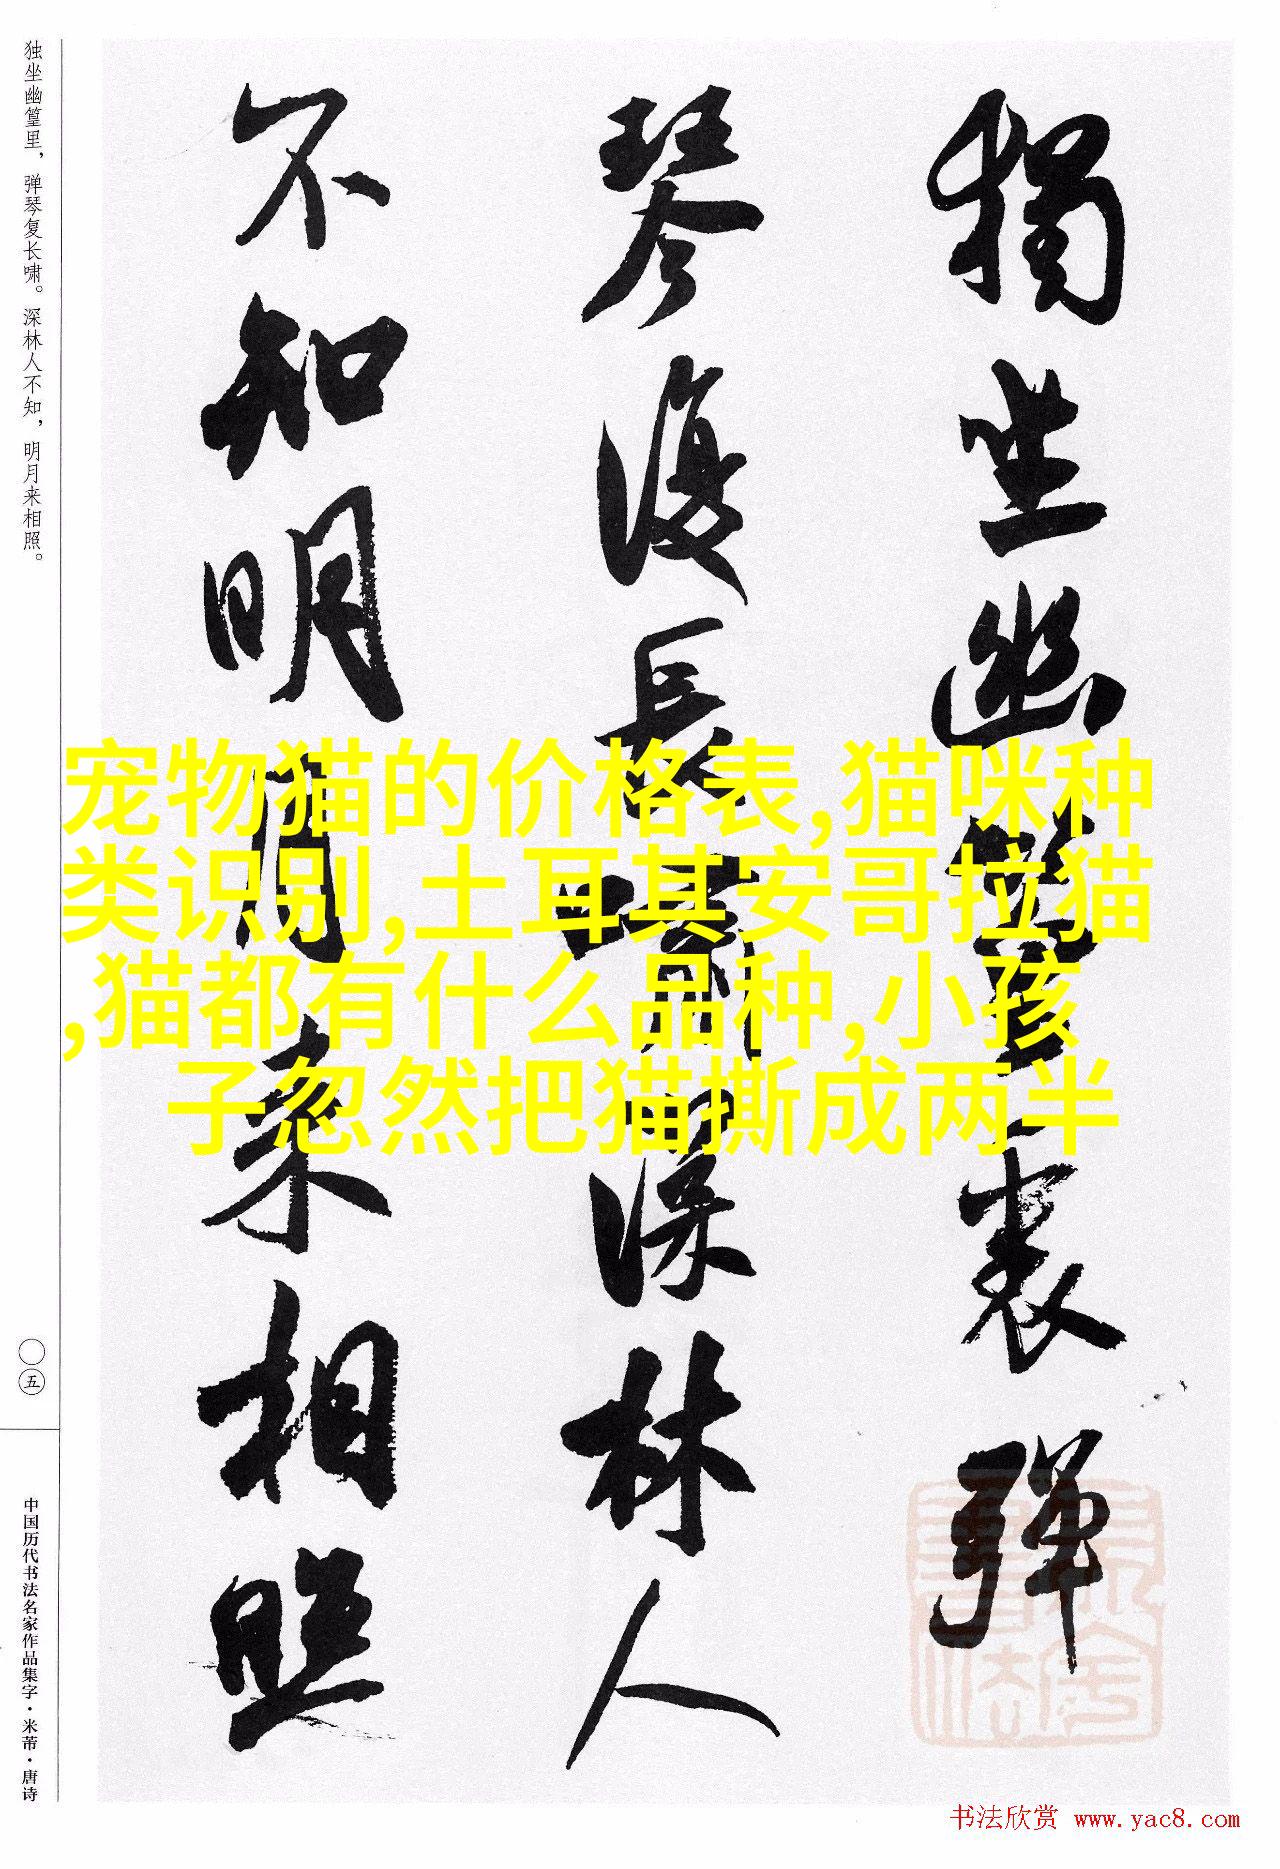 獨坐幽篁裏彈
琴復長嘯深林人
不知明月來相照
独坐幽篁里，弹琴复长啸。深林人不知，明月来相照。
〇五
中国历代书法名家作品集字·米芾·唐诗
宠物猫的价格表,猫咪种
类识别,土耳其安哥拉猫
,猫都有什么品种,小孩
子忽然把猫撕成两半
书法欣赏 www.yac8.com